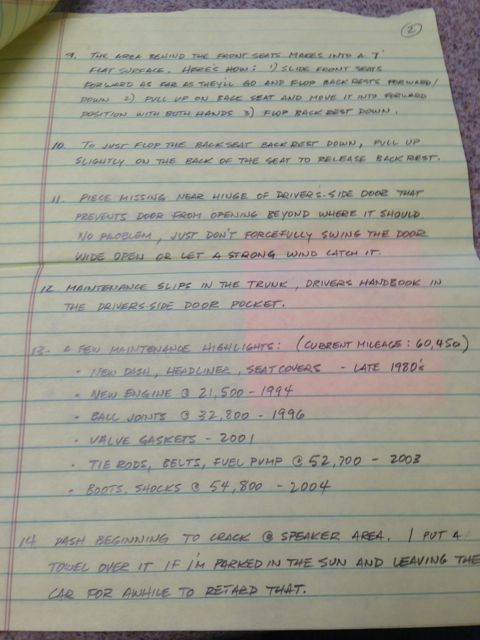 2
9. THE AREA BEHIND THE FRONT SEATS MAKES INTO A 7'
FLAT SURFACE. HERE'S HOW: 1) SLIDE FRONT SEATS
FORWARD AS FAR AS THEY'LL GO AND FLOP BACK RESTS FORWARD/
DOWN 2) PULL UP ON BACK SEAT AND MOVE IT INTO FORWARD
POSITION WITH BOTH HANDS 3) FLOP BACK REST DOWN.
10. TO JUST FLOP THE BACKSEAT BACK REST DOWN, PULL UP
SLIGHTLY ON THE BACK OF THE SEAT TO RELEASE BACK REST.
11. PIECE MISSING NEAR HINGE OF DRIVER'S-SIDE DOOR THAT
PREVENTS DOOR FROM OPENING BEYOND WHERE IT SHOULD.
NO PROBLEM, JUST DON'T FORCEFULLY SWING THE DOOR
WIDE OPEN OR LET A STRONG WIND CATCH IT.
12. MAINTENANCE SLIPS IN THE TRUNK, DRIVERS HANDBOOK IN
THE DRIVERS-SIDE DOOR POCKET.
13- A FEW MAINTENANCE HIGHLIGHTS: (CURRENT MILEAGE: 60,450)
• NEW DASH, HEADLINER, SEATCOVERS - LATE 1980's
• NEW ENGINE @ 21,500 - 1994
• BALL JOINTS @ 32,800 - 1996
• VALVE GASKETS - 2001
• TIE RODS, BELTS, FUEL PUMP @ 52,700 - 2003
• BOOTS, SHOCKS @ 54,800 - 2004
14 DASH BEGINNING TO CRACK @ SPEAKER AREA. I PUT A
TOWEL OVER IT IF I'M PARKED IN THE SUN AND LEAVING THE
CAR FOR AWHILE TO RETARD THAT.